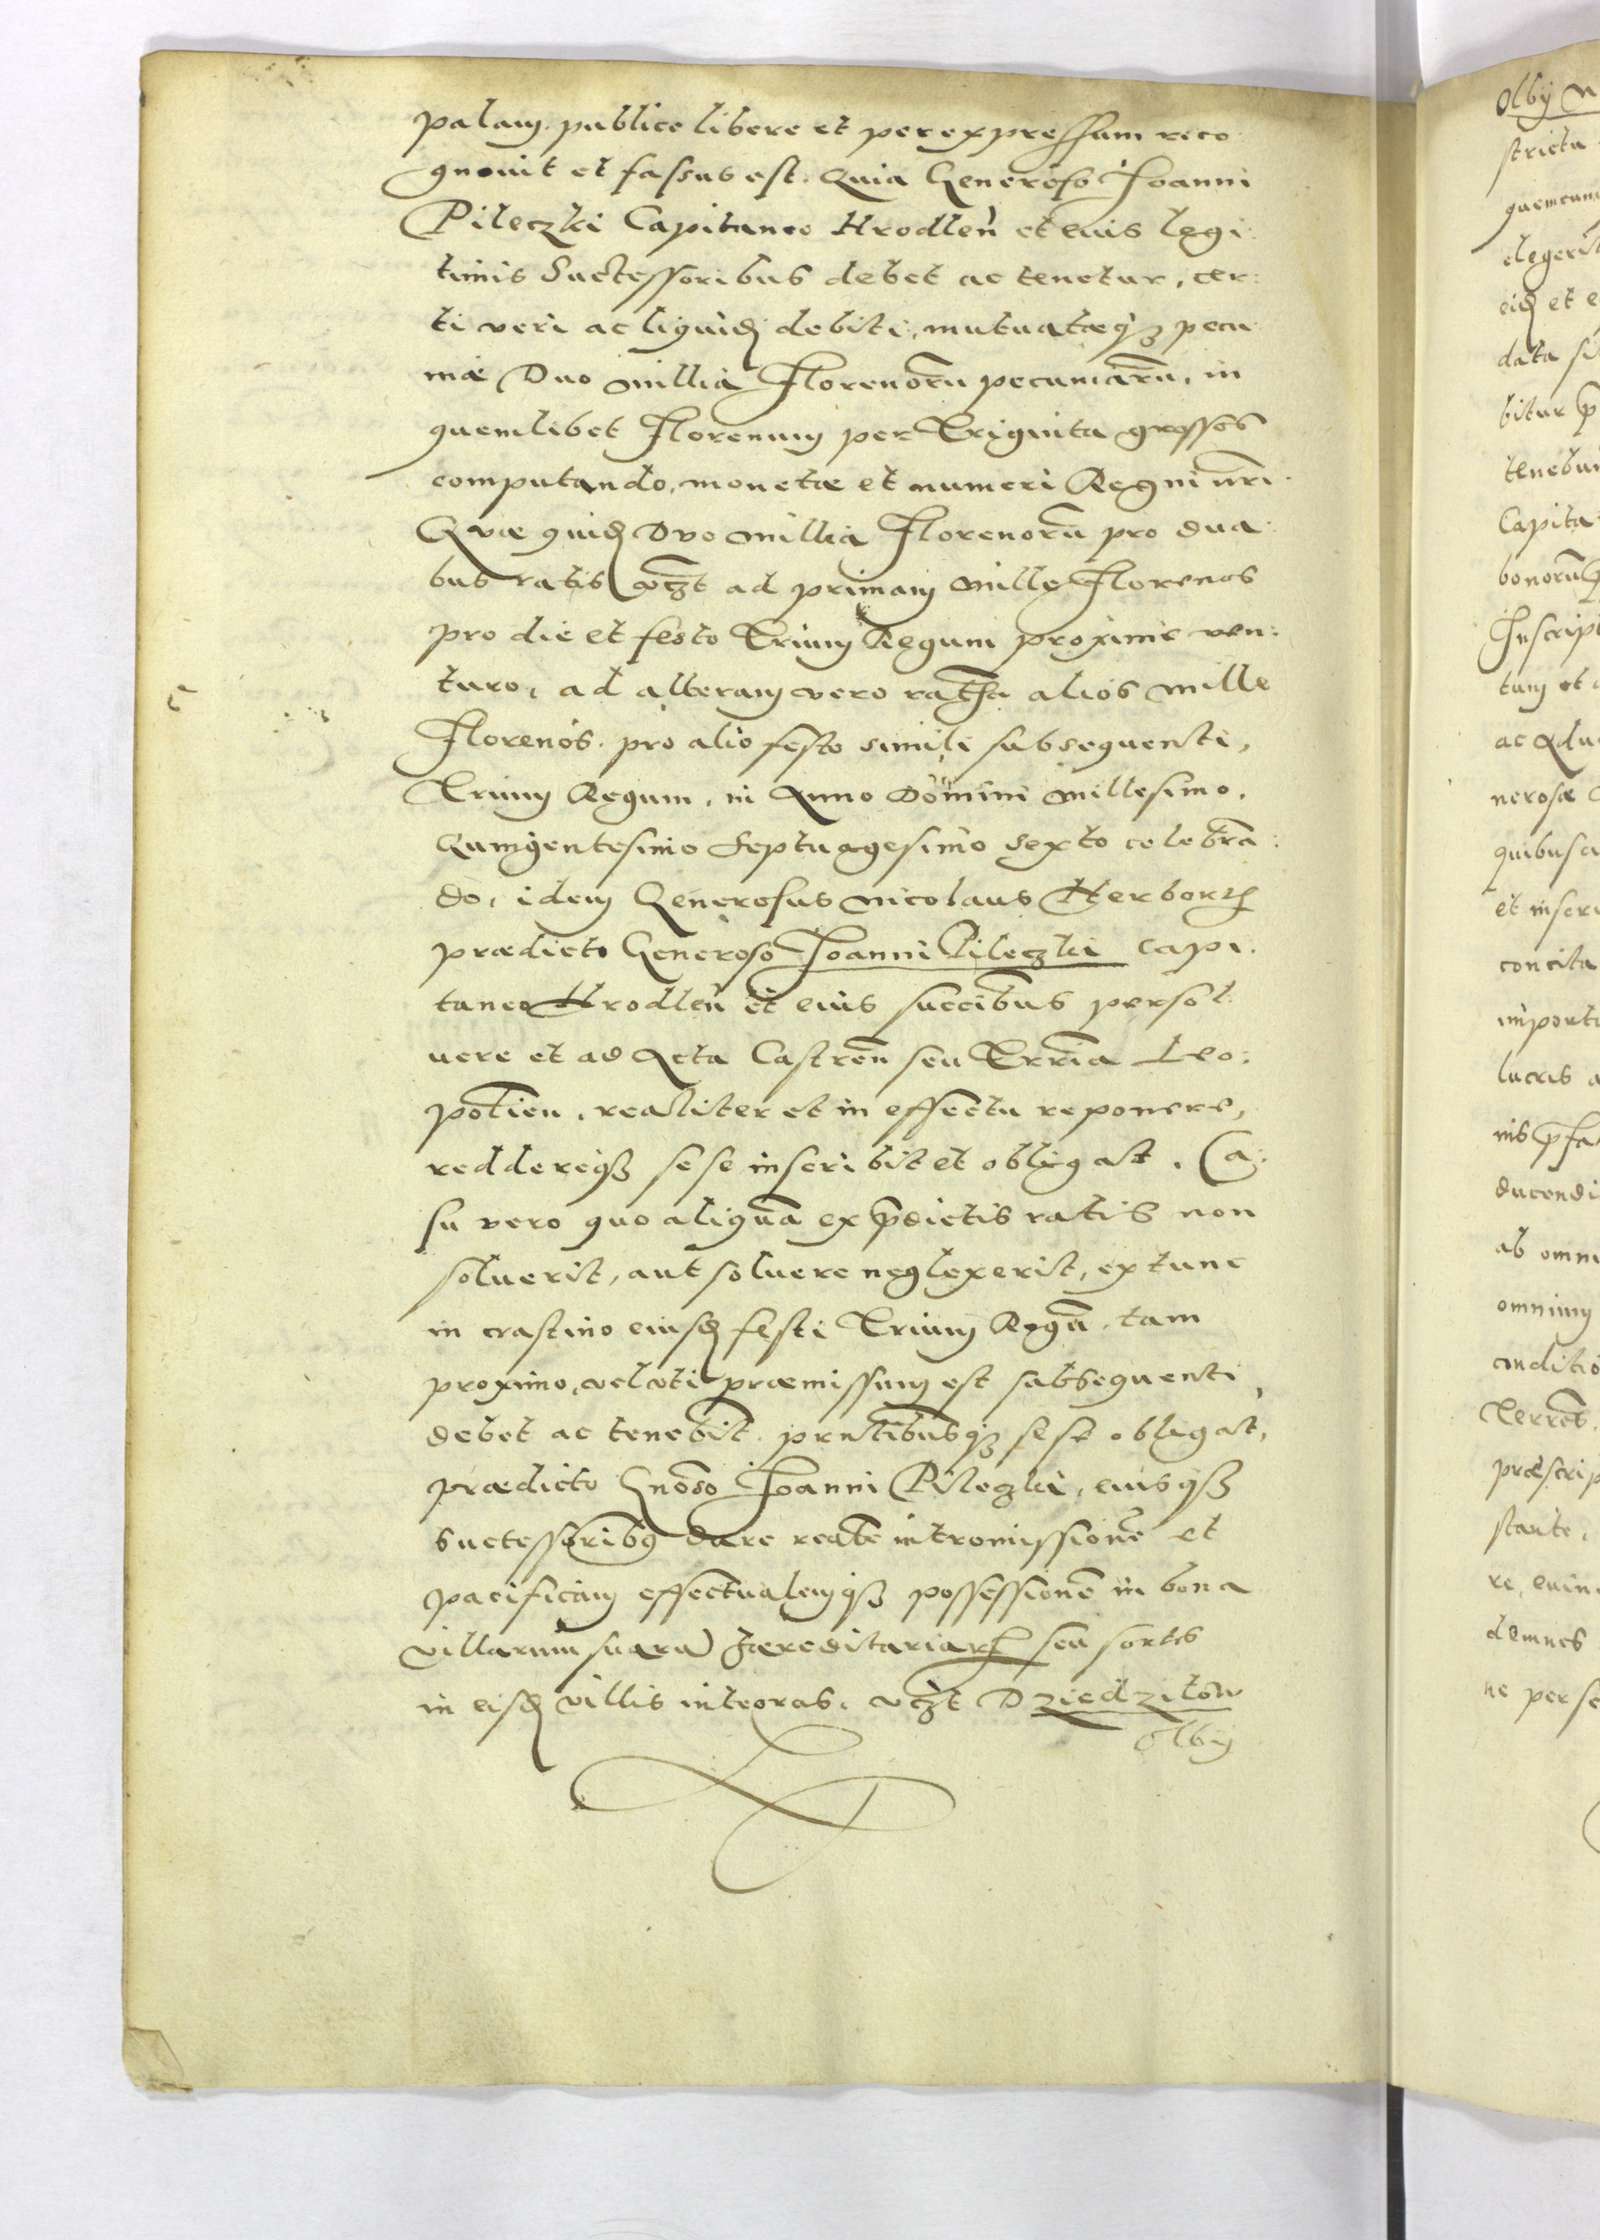 palam publice libere et per expressum reco
gnouit et fassus est. Quia Generoso Joanni
Pileczki Capitaneo Hrodlen̄ et eius legi:
timis Successoribus debet ac tenetur, cer:
ti veri ac liquid debiti, mutuatæqȝ pecu
niæ Duo millia Florenorū pecuniarū, in
quemlibet Florenum per Triginta grossos
computando, monetæ et numeri Regni nr̄i.
Quæ quid Duo millia Florenorū pro dua:
bus ratis vcȝt ad primam mille Florenos
pro die et festo Trium Regum proxime ven:
turo, ad alteram vero alios mille
Florenos pro alio festo simili subsequenti,
Trium Regum, in Anno Domini millesimo,
Quingentesimo Septuagesimo sexto celebrā:
do, idem Generosus Nicolaus Herborth
prædicto Generoso Joanni Pileczki Capi:
taneo Hrodlen̄ et eius succībus persol:
uere et ad Acta Castren̄ seu Trr̄ia Leo:
polien, realiter et in effectu reponere,
reddereqȝ sese inscribit et obligat. Ca:
su vero quo aliquā ex p̄dictis ratis non
soluerit, aut soluere neglexerit, ex tunc
in crastino eiusd festi Trium Regū, tam
proximo, veluti præmissum est subsequenti,
debet ac tenebit. prn̄tibusqȝ sese obligat,
prædicto Gnōso Joanni Pileczki, eiusqȝ
successoribꝯ dare realē intromissionē et
pacificam effectualemqȝ possessionē in bona
villarum suarū hæreditariarꝝ seu sortes
in eisd villis integras, vcȝt Dziedzitow
Olby

Olby
strictu
quemcum
elegerit
eid et e
data si
bitur p̄
tenebu
Capita
bonorū
Inscript
tum et
ac Adu
nerosæ
quibus
et inscri
concita
importu
lucris a
nis p̄fa
ducendi
ab omni
omnium
conditio
Terres
præscrip
stante,
re, euin
demnes
ne per se